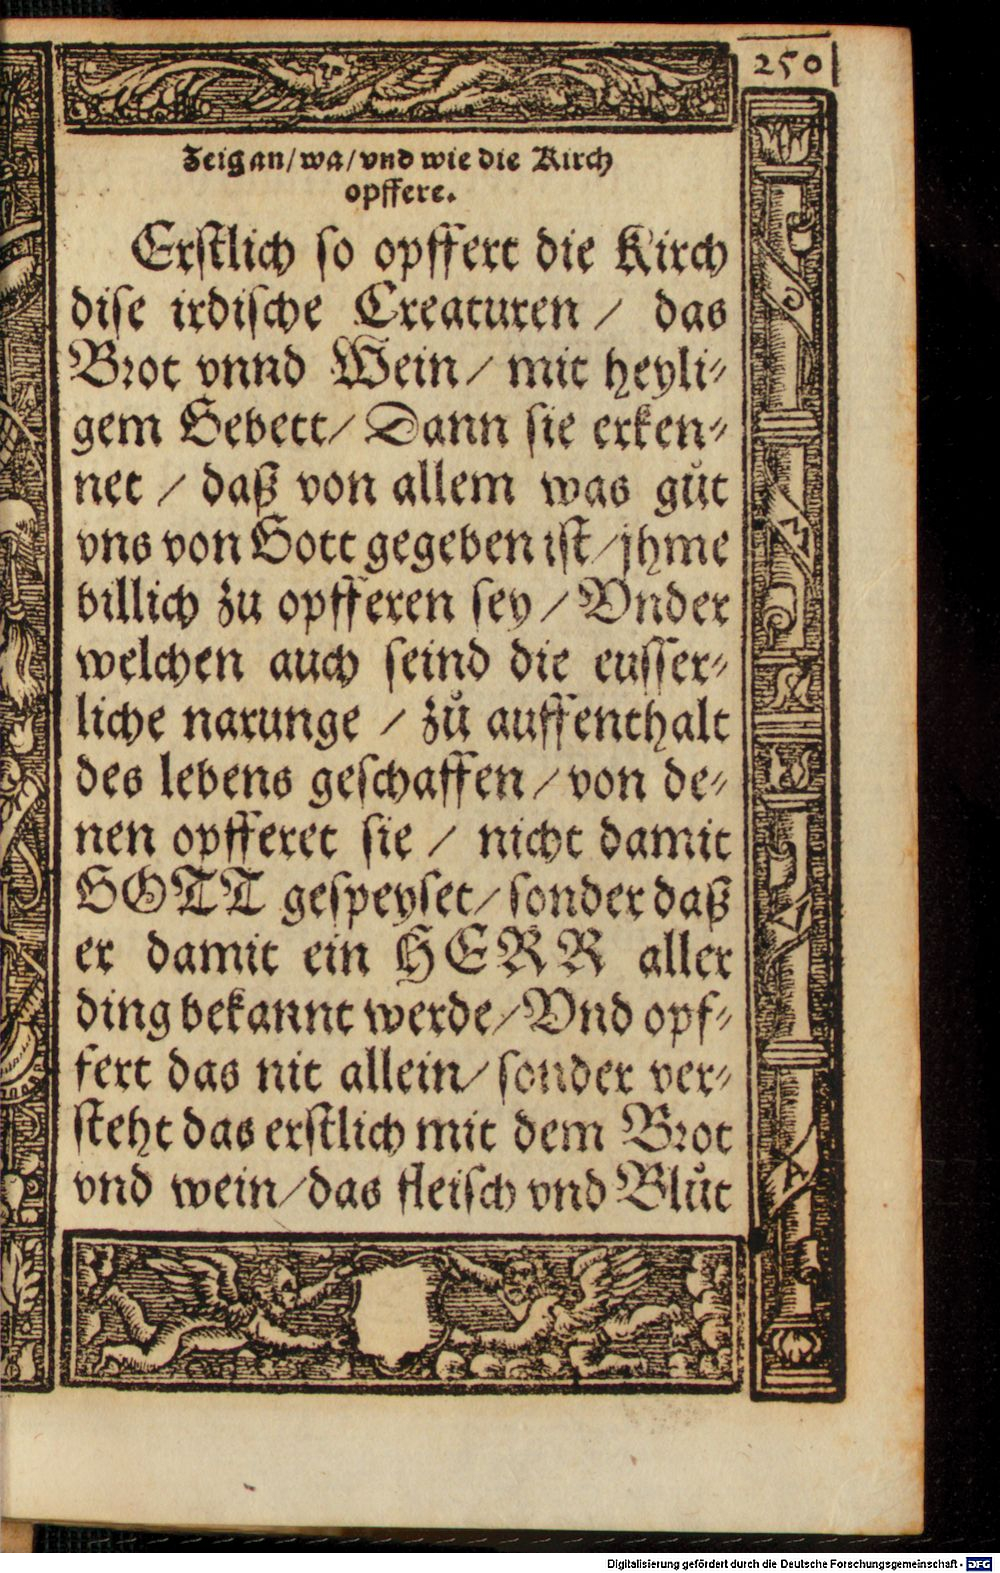 250
Zeig an/ wa/ vnd wie die Kirch
opffere.
Erstlich so opffert die Kirch
dise irdische Creaturen / das
Brot vnnd Wein / mit heyli-
gem Gebett / Dann sie erken-
net / daß von allem was guͦt
vns von Gott gegeben ist / jhme
billich zu opfferen sey / Vnder
welchen auch seind die eusser-
liche narunge / zuͦ auffenthalt
des lebens geschaffen / von de-
nen opfferet sie / nicht damit
GOTT gespeyset / sonder daß
er damit ein HERR aller
ding bekannt werde / Vnd opf-
fert das nit allein / sonder ver-
steht das erstlich mit dem Brot
vnd wein / das fleisch vnd Bluͦt
Digitalisierung gefördert durch die Deutsche Forschungsgemeinschaft - DFG